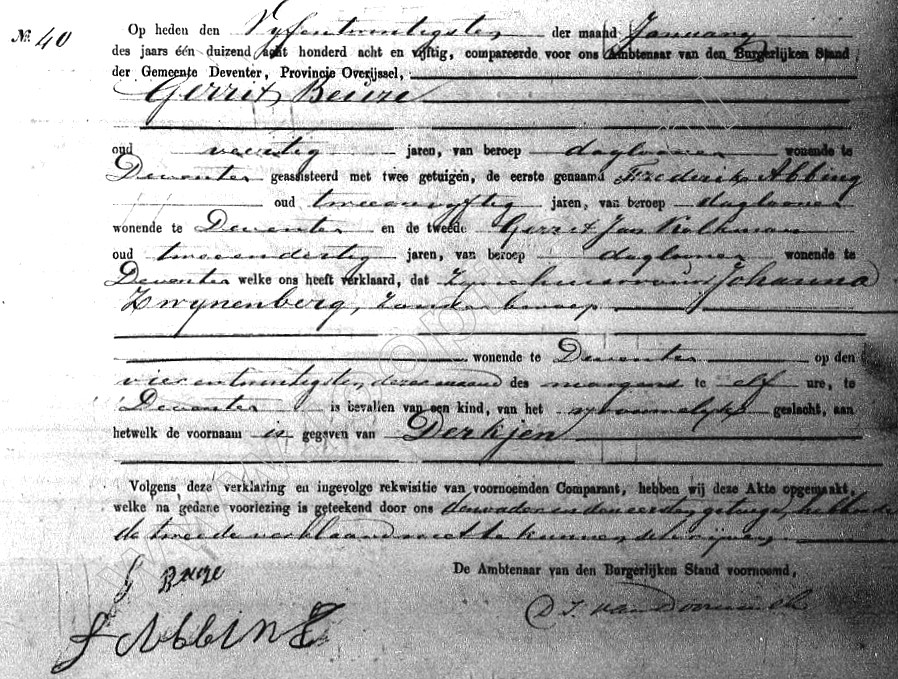 No. 40
Op heden den Vyfentwintigsten der maand January
des jaars één duizend acht honderd acht en vijftig, compareerde voor ons Ambtenaar van den Burgerlijken Stand
der Gemeente Deventer, Provincie Overijssel,
Gerrit Beuze
oud veertig jaren, van beroep daglooner wonende te
Deventer geassisteerd met twee getuigen, de eerste genaamd Frederik Abbing
oud tweeenvyftig jaren, van beroep daglooner
wonende te Deventer en de tweede Gerrit Jan Kolkman
oud tweeendertig jaren, van beroep daglooner wonende te
Deventer welke ons heeft verklaard, dat zyne huisvrouw Johanna
Zwynenberg, zonder beroep
wonende te Deventer op den
vierentwintigsten dezer maand des morgens te elf ure, te
Deventer is bevallen van een kind, van het vrouwelyke geslacht, aan
hetwelk de voornaam is gegeven van Derkjen
Volgens deze verklaring en ingevolge rekwisitie van voornoemden Comparant, hebben wij deze Akte opgemaakt,
welke na gedane voorlezing is geteekend door ons den vader en den eersten getuige, hebbende
de tweede verklaard niet te kunnen schrijven
De Ambtenaar van den Burgerlijken Stand voornoemd,
G Beuze
D. J. van Doorninck
F Abbing